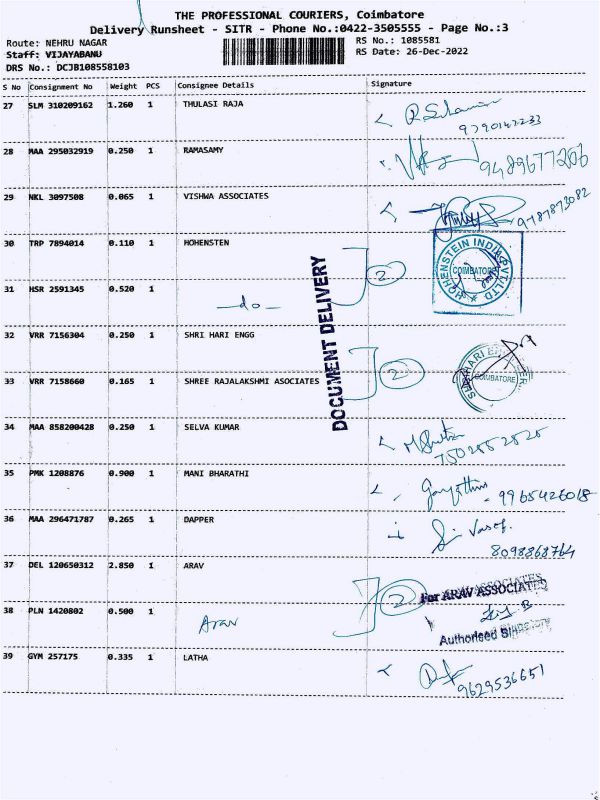 THE PROFESSIONAL COURIERS, Coimbatore
Delivery Runsheet - SITR - Phone No.:0422-3505555 - Page No.:3
Route: NEHRU NAGAR RS No.: 1085581
Staff: VIJAYABANU RS Date: 26-Dec-2022
DRS No.: DCJB108558103
S No Consignment No Weight PCS Consignee Details Signature
27 SLM 310209162 1.260 1 THULASI RAJA
9790142233
28 MAA 295032919 0.250 1 RAMASAMY 9489677206
29 NKL 3097508 0.065 1 VISHWA ASSOCIATES 9787873082
30 TRP 7894014 0.110 1 HOHENSTEN
2
HOHENSTEIN INDIA PVT LTD
COIMBATORE
31 HSR 2591345 0.520 1 -do-
DOCUMENT DELIVERY
32 VRR 7156304 0.250 1 SHRI HARI ENGG
2
COIMBATORE
33 VRR 7158660 0.165 1 SHREE RAJALAKSHMI ASOCIATES
34 MAA 858200428 0.250 1 SELVA KUMAR
7502552525
35 PMK 1208876 0.900 1 MANI BHARATHI
9965426018
36 MAA 296471787 0.265 1 DAPPER
8098868764
37 DEL 120650312 2.850 1 ARAV
2
For ARAV ASSOCIATES
38 PLN 1420802 0.500 1 Arav
Authorised Signatory
39 GYM 257175 0.335 1 LATHA
9629536651